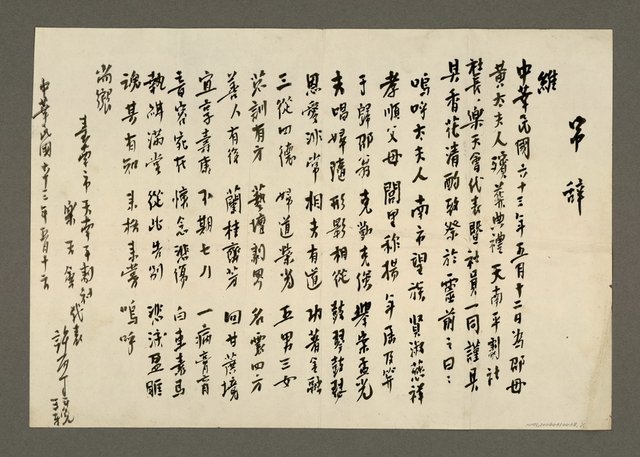 弔辞
維
中華民國六十三年五月十二日為邵母
黃太夫人殯葬典禮天南平劇社
社長、樂天會代表暨社員一同謹具
具香花清酌致祭於靈前之曰：
嗚呼太夫人 南市望族 賢淑慈祥
孝順父母 閭里称揚 年居及笄
于歸邵翁 克勤克儉 舉案孟光
夫唱婦隨 形影相從 鼓琴鼓瑟
恩愛非常 相夫有道 功著
三從四德 婦道榮為 五男三女
有方 藝壇 名震四方
善人有後 蘭桂齊芳 回甘蔗境
宜享壽康 不期七八 一病膏肓
音容宛在 懷念悲傷 白車素馬
執紼滿堂 從此告別 悲淚盈眶
魂其有知 來格來嘗 嗚呼
尚饗
臺南市天南平劇社
樂天會 代表
許丙丁
中華民國六十三年五月十二